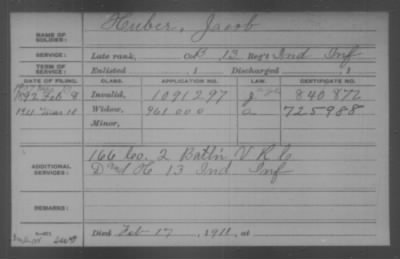 NAME OF SOLDIER: Heuber, Jacob
SERVICE: Late rank, Co. B, 13 Reg't Ind Inf
TERM OF SERVICE: Enlisted , 1 Discharged , 1
DATE OF FILING. CLASS. APPLICATION NO. LAW. CERTIFICATE NO.
1892 Feb 9 Invalid, 1091297 840872
1911 Mar 10 Widow, 961.000 a 725988
Minor,
ADDITIONAL SERVICES: 166 Co. 2 Batt'n V R C
D H 13 Ind Inf
REMARKS:
Died Feb 17, 1911, at